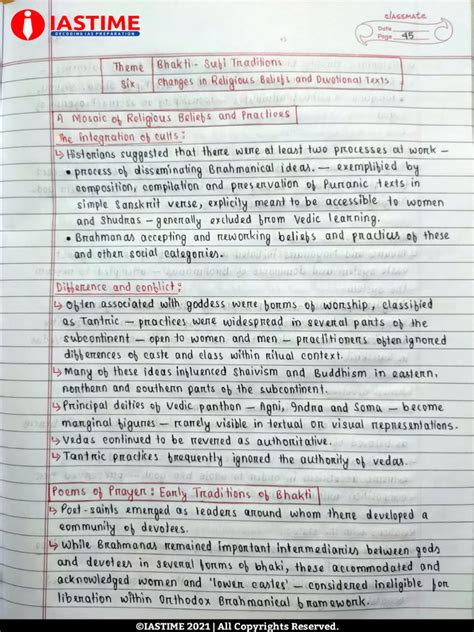 IASTIME
DECODING IAS PREPARATION
classmate
Date
Page 45
Theme Bhakti - Sufi Traditions
Six Changes in Religious Beliefs and Devotional Texts
A Mosaic of Religious Beliefs and Practices
The integration of cults:
↳ Historians suggested that there were at least two processes at work -
• process of disseminating Brahmanical ideas. — exemplified by
composition, compilation and preservation of Puranic texts in
simple Sanskrit verse, explicity meant to be accessible to women
and Shudras - generally excluded from Vedic learning.
• Brahmanas accepting and reworking beliefs and practices of these
and other social categories.
Difference and conflict:
↳ Often associated with goddess were forms of worship, classified
as Tantric — practices were widespread in several parts of the
subcontinent — open to women and men — practitioners often ignored
differences of caste and class within ritual context.
↳ Many of these ideas influenced Shaivism and Buddhism in eastern,
northern and southern parts of the subcontinent.
↳ Principal deities of Vedic panthon - Agni, Indra and Soma - become
marginal figures - rarely visible in textual or visual representations.
↳ Vedas continued to be revered as authoritative.
↳ Tantric practices frequently ignored the authority of vedas.
Poems of Prayer: Early Traditions of Bhakti
↳ Poet-saints emerged as leaders around whom there developed a
community of devotees.
↳ While Brahmanas remained important intermediaries between gods
and devotees in several forms of bhaki, these accommodated and
acknowledged women and 'lower castes' - considered ineligible for
liberation within Orthodox Brahmanical framework.
©IASTIME 2021 | All Copyrights Reserved.